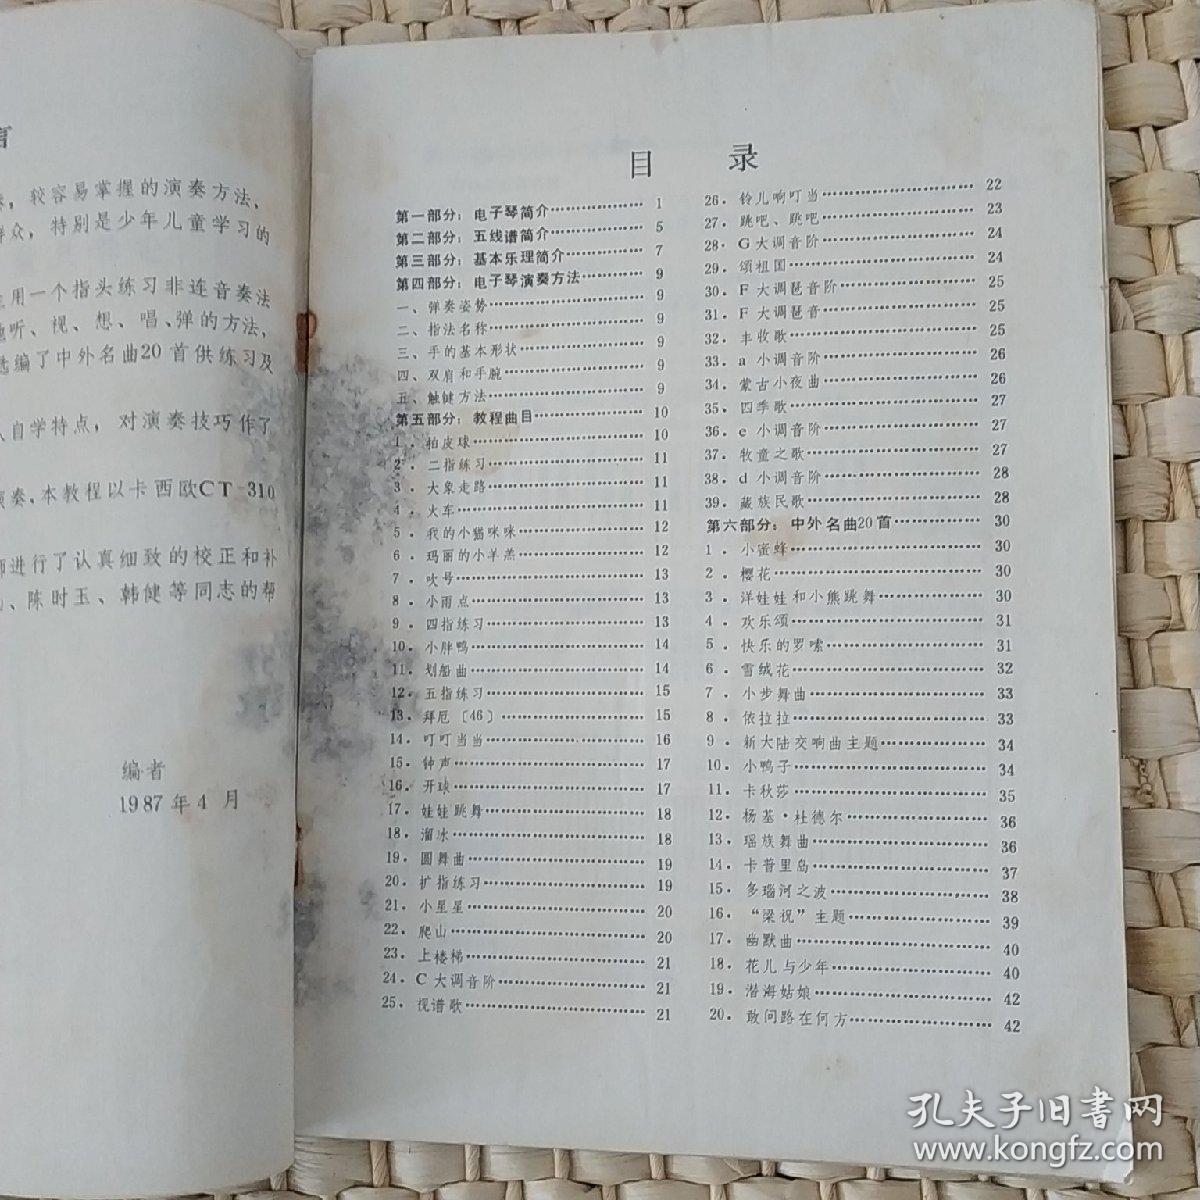 言
较容易掌握的演奏方法,
群众, 特别是少年儿童学习的
用一个指头练习非连音奏法
地听、视、想、唱、弹的方法,
选编了中外名曲20首供练习及
人自学特点, 对演奏技巧作了
演奏,本教程以卡西欧CT-310
师进行了认真细致的校正和补
、陈时玉、韩健等同志的帮
编者
1987年4月
目 录
第一部分: 电子琴简介……………… 1
第二部分: 五线谱简介……………… 5
第三部分: 基本乐理简介…………… 7
第四部分: 电子琴演奏方法………… 9
一、弹奏姿势……………… 9
二、指法名称……………… 9
三、手的基本形状………… 9
四、双肩和手腕…………… 9
五、触键方法……………… 9
第五部分: 教程曲目……………… 10
1.拍皮球……………… 10
2.二指练习……………… 11
3.大象走路……………… 11
4.火车……………… 11
5.我的小猫咪咪……………… 12
6.玛丽的小羊羔……………… 12
7.吹号……………… 13
8.小雨点……………… 13
9.四指练习……………… 13
10.小胖鸭……………… 14
11.划船曲……………… 14
12.五指练习……………… 15
13.拜厄〔46〕……………… 15
14.叮叮当当……………… 16
15.钟声……………… 17
16.开球……………… 17
17.娃娃跳舞……………… 18
18.溜冰……………… 18
19.圆舞曲……………… 19
20.扩指练习……………… 19
21.小星星……………… 20
22.爬山……………… 20
23.上楼梯……………… 21
24.C大调音阶……………… 21
25.视谱歌……………… 21
26.铃儿响叮当……………… 22
27.跳吧、跳吧……………… 23
28.G大调音阶……………… 24
29.颂祖国……………… 24
30.F大调琶音阶……………… 25
31.F大调琶音……………… 25
32.丰收歌……………… 25
33.a小调音阶……………… 26
34.蒙古小夜曲……………… 26
35.四季歌……………… 27
36.e小调音阶……………… 27
37.牧童之歌……………… 27
38.d小调音阶……………… 28
39.藏族民歌……………… 28
第六部分: 中外名曲20首……………… 30
1.小蜜蜂……………… 30
2.樱花……………… 30
3.洋娃娃和小熊跳舞……………… 30
4.欢乐颂……………… 31
5.快乐的罗嗦……………… 31
6.雪绒花……………… 32
7.小步舞曲……………… 33
8.依拉拉……………… 33
9.新大陆交响曲主题……………… 34
10.小鸭子……………… 34
11.卡秋莎……………… 35
12.杨基·杜德尔……………… 36
13.瑶族舞曲……………… 36
14.卡普里岛……………… 37
15.多瑙河之波……………… 38
16.“梁祝”主题……………… 39
17.幽默曲……………… 40
18.花儿与少年……………… 40
19.潜海姑娘……………… 42
20.敢问路在何方……………… 42
孔夫子旧书网
www.kongfz.com